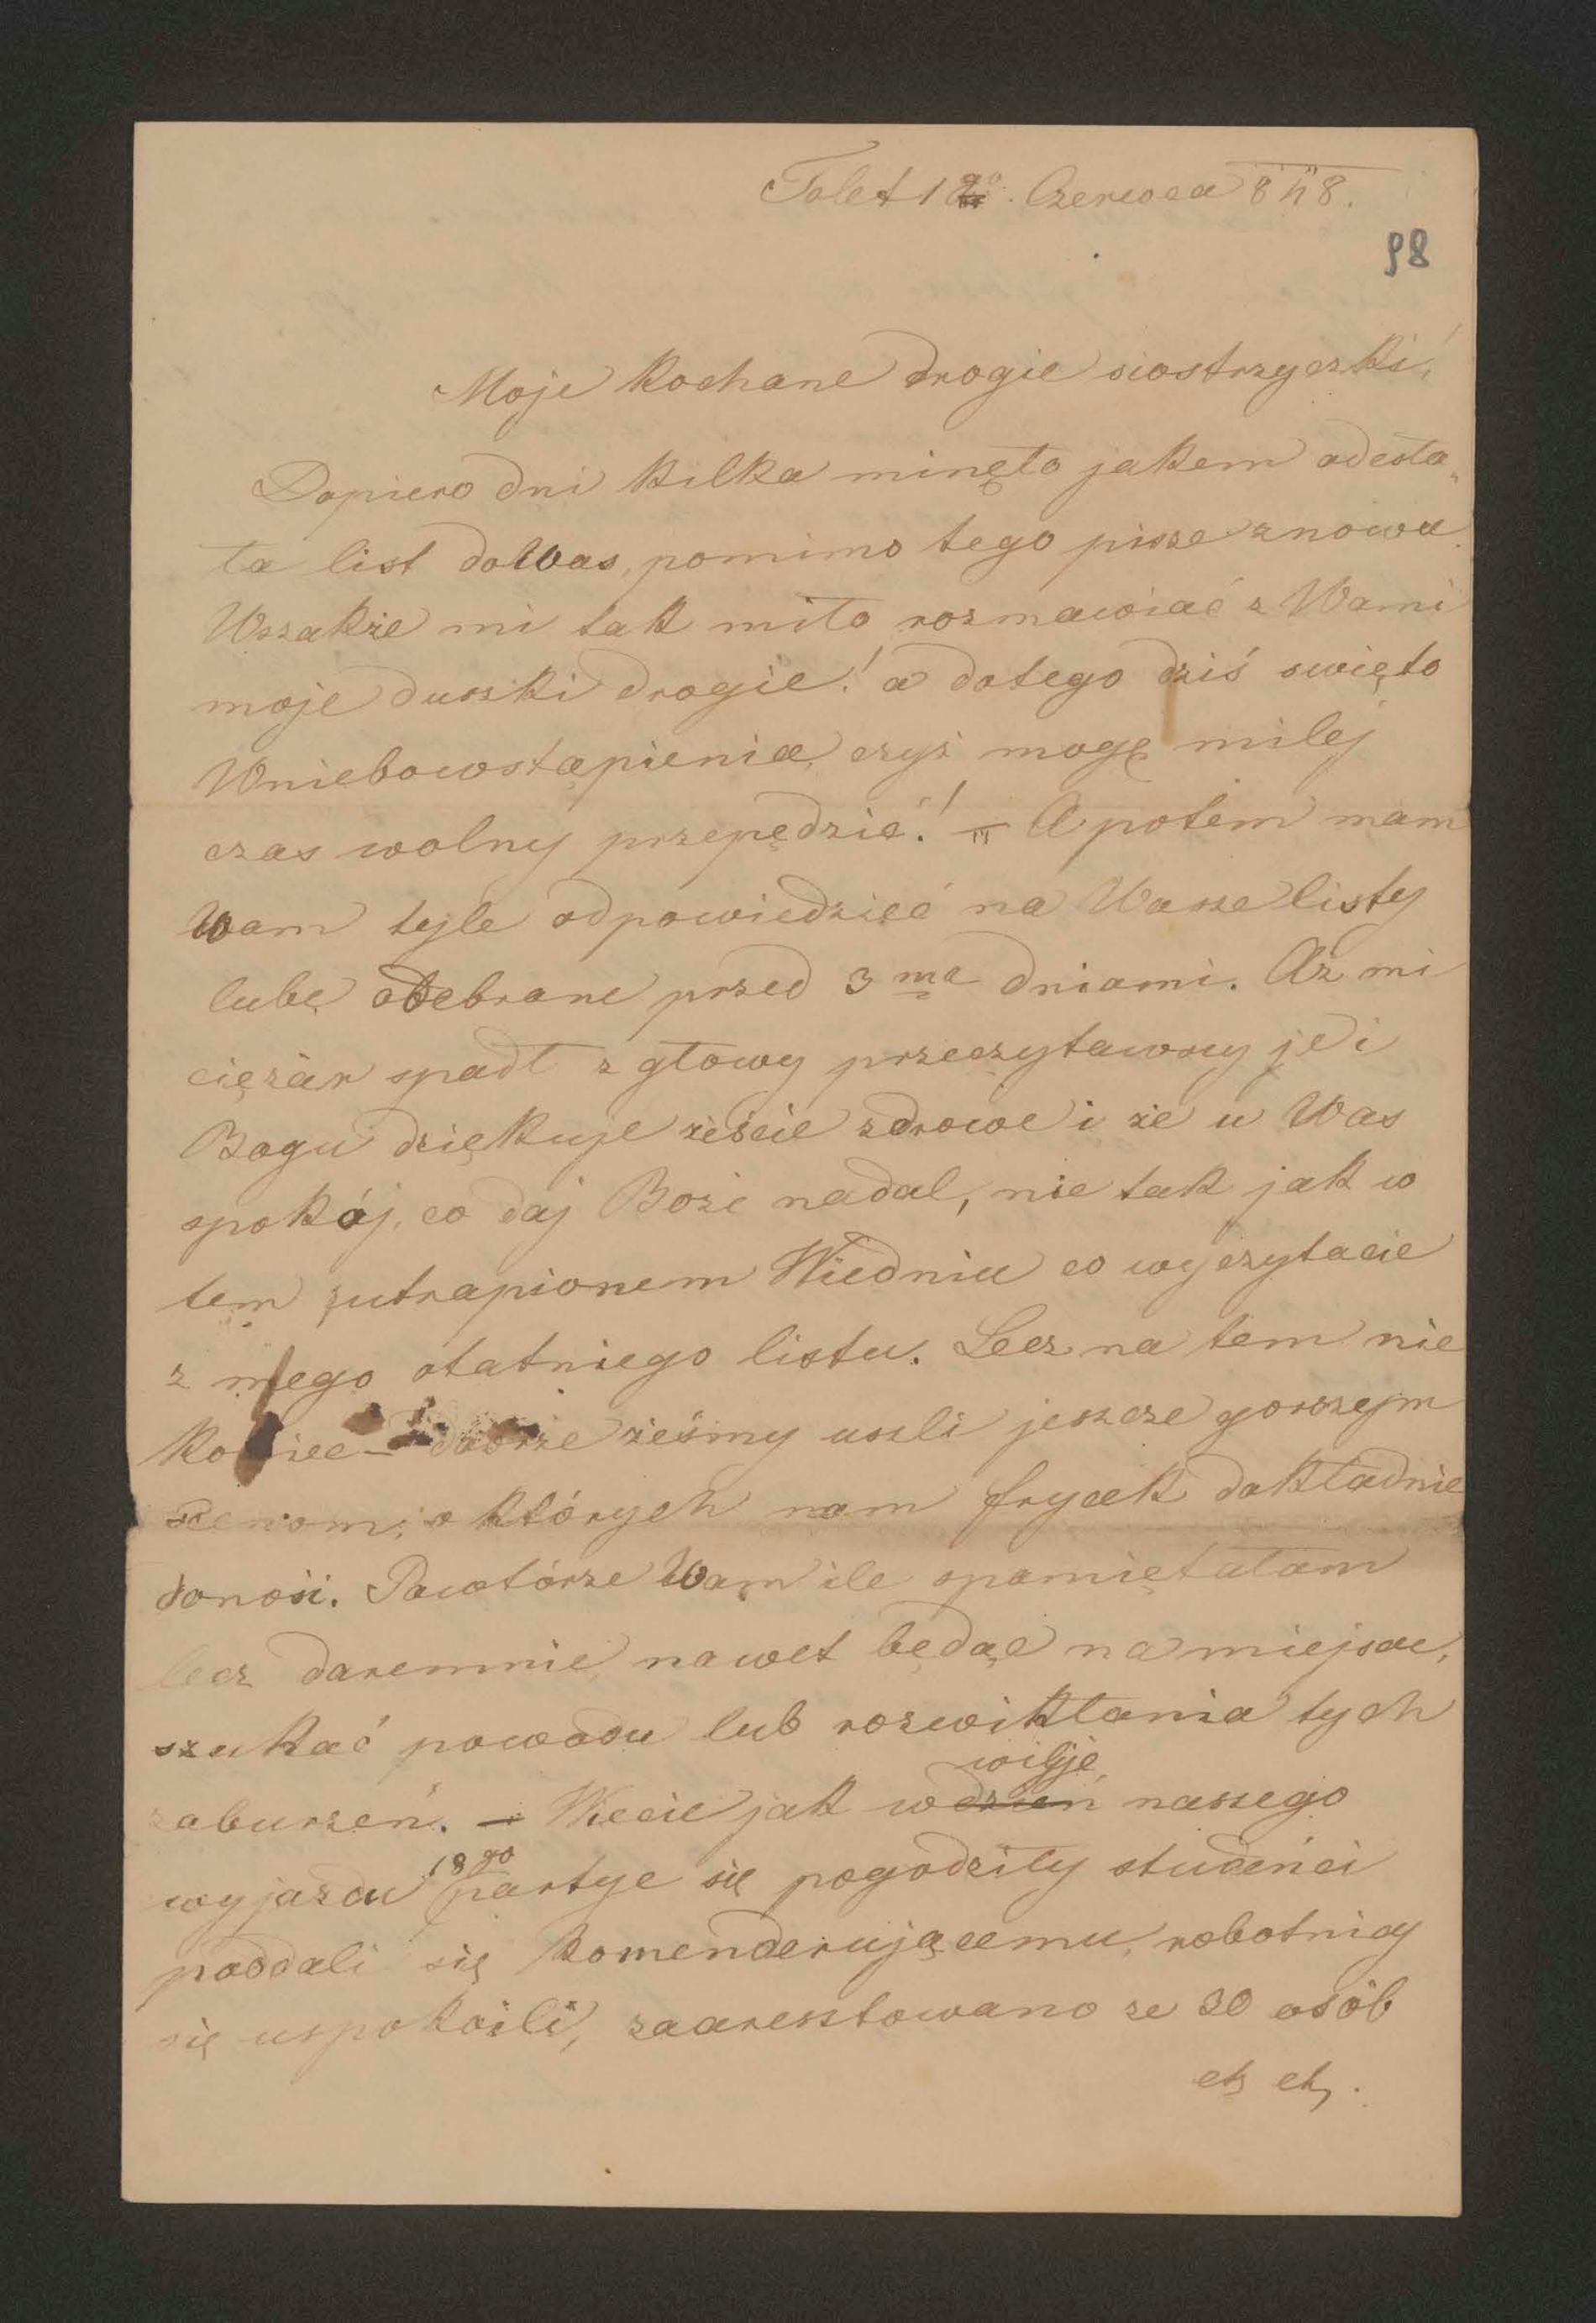 Tolet 1go. Czerwca 848.
98
Moje kochane drogie siostrzyczki!
Dopiero dni kilka minęło jakem odesła„
ła list do Was, pomimo tego pisze znowu.
Wszakże mi tak miło rozmawiać z Wami
moje duszki drogie! a do tego dziś swięto
Wniebowstąpienia, czyż mogę milej
czas wolny przepędzić! – A potem mam
Wam tyle odpowiedzieć na Wasze listy
lube odebrane przed 3ma dniami. Aż mi
ciężar spadł z głowy przeczytawszy je i
Bogu dziękuje żeście zdrowe i że u Was
spokój, co daj Boże nadal, nie tak jak w
tem zutrapionem Wiedniu co wyczytacie
z mego otatniego listu. Lecz na tem nie
koniec – dobrze żeśmy uszli jeszcze gorszym
scenom, o których nam frycek dokładnie
donosi. Powtórze Wam ile spamiętałam
lecz daremnie, nawet będąc na miejscu,
szukać powodu lub rozwikłania tych
zaburzeń. – Wiecie jak w dzień wilije naszego
wyjazdu 18go partye się pogodziły studenci
poddali się komenderującemu, robotnicy
się uspokoili, zaaresztowano ze 30 osób
etz etz.